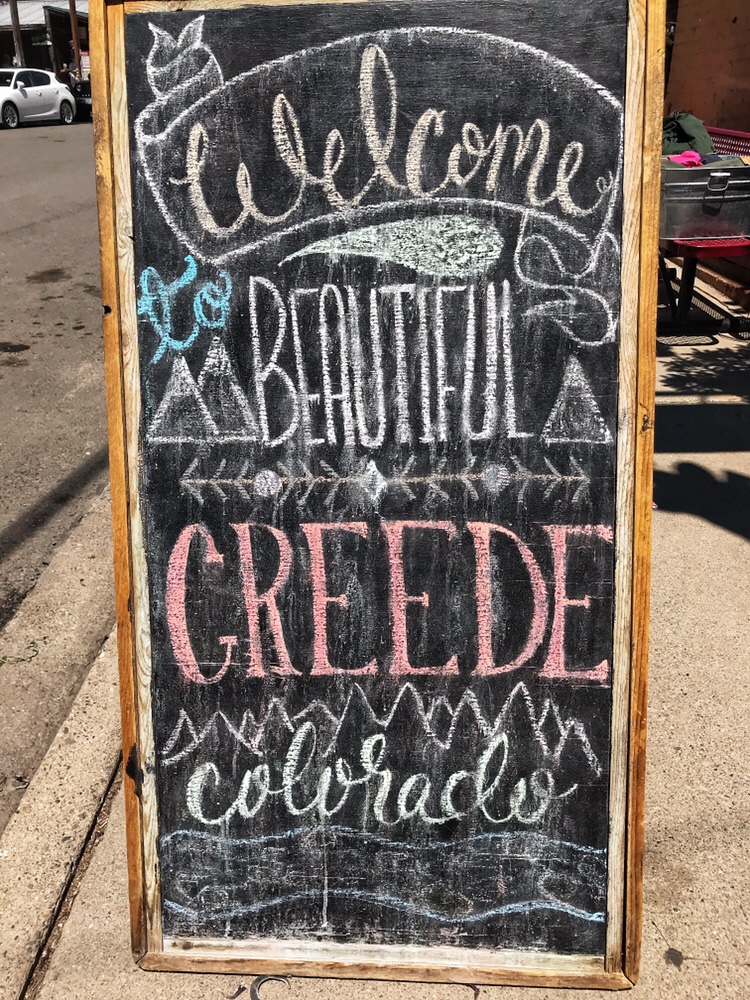 Welcome
to
BEAUTIFUL
CREEDE
colorado